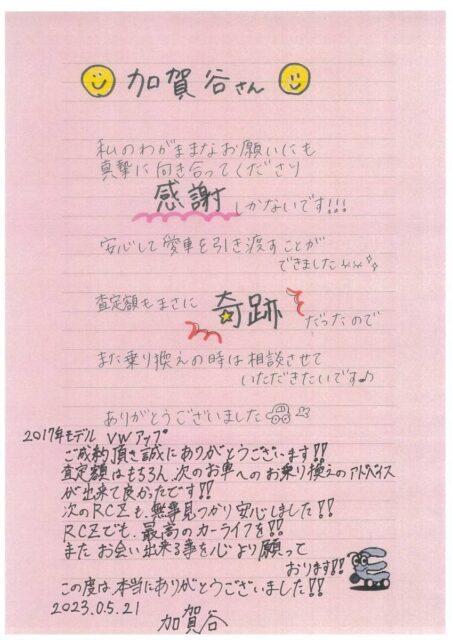 加賀谷さん
私のわがままなお願いにも
真摯に向き合ってくださり
感謝しかないです!!!
安心して愛車を引き渡すことが
できました
査定額もまさに奇跡だったので
また乗り換えの時は相談させて
いただきたいです♪
ありがとうございました
2017年モデル VWアップ
ご成約頂き誠にありがとうございます!!
査定額はもちろん、次のお車へのお乗り換えのアドバイス
が出来て良かったです!!
次のRCZも、無事見つかり安心しました!!
RCZでも、最高のカーライフを!!
またお会い出来る事を心より願って
おります!!
この度は本当にありがとうございました!!
2023.05.21
加賀谷